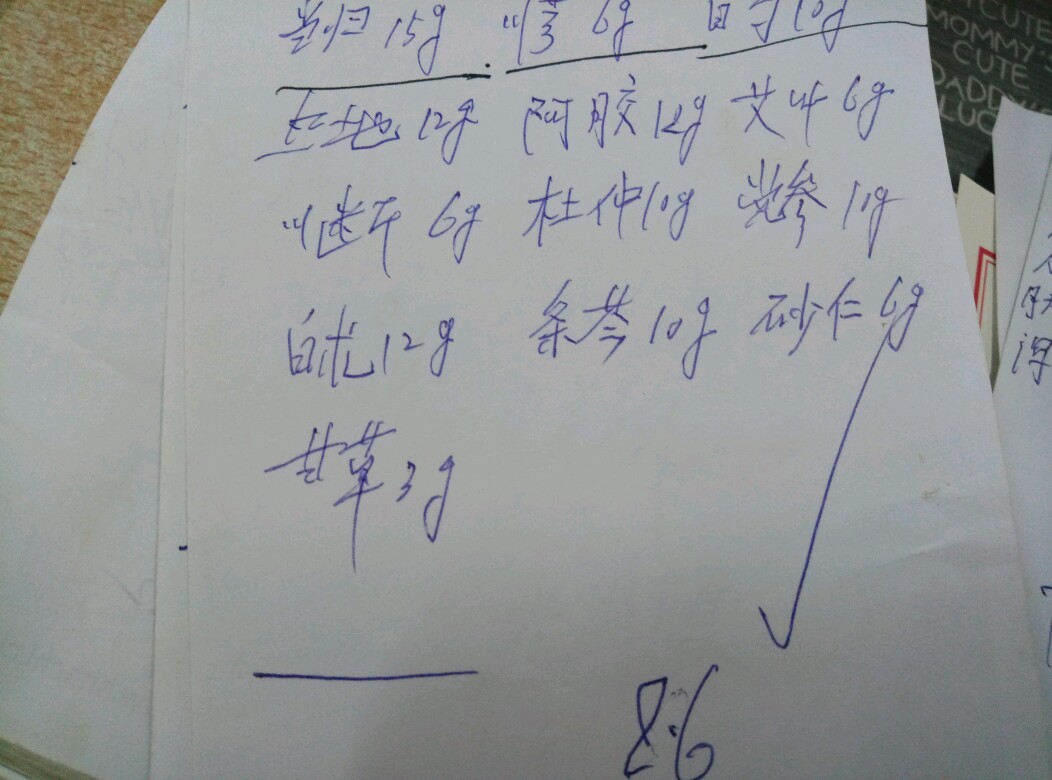 当归 15g 川芎 6g 白芍 10g
生地 12g 阿胶 12g 艾叶 6g
川断 6g 杜仲 10g 党参 10g
白术 12g 条芩 10g 砂仁 6g
甘草 3g
8.6
CUTE
MOMMY'S
CUTE
DADDY
LUC